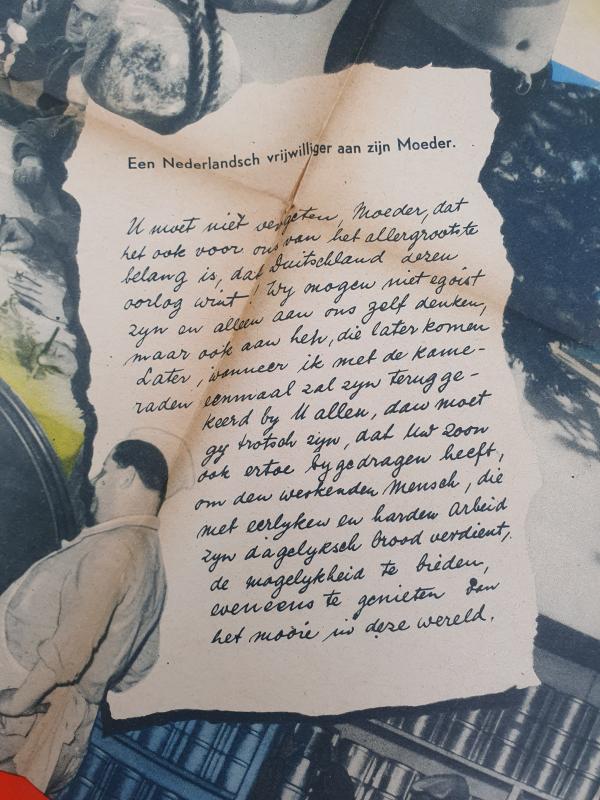 Een Nederlandsch vrijwilliger aan zijn Moeder.
U moet niet vergeten, Moeder, dat
het ook voor ons van het allergrootste
belang is, dat Duitschland dezen
oorlog wint! Wy mogen niet egoist
zyn en alleen aan ons zelf denken,
maar ook aan hen, die later komen
Later, wanneer ik met de kame-
raden eenmaal zal zyn terugge-
keerd by U allen, dan moet
gy trotsch zyn, dat Uw zoon
ook ertoe bygedragen heeft,
om den werkenden Mensch, die
met eerlyken en harden Arbeid
zyn dagelyksch brood verdient,
de mogelykheid te bieden,
eveneens te genieten van
het mooie in deze wereld.